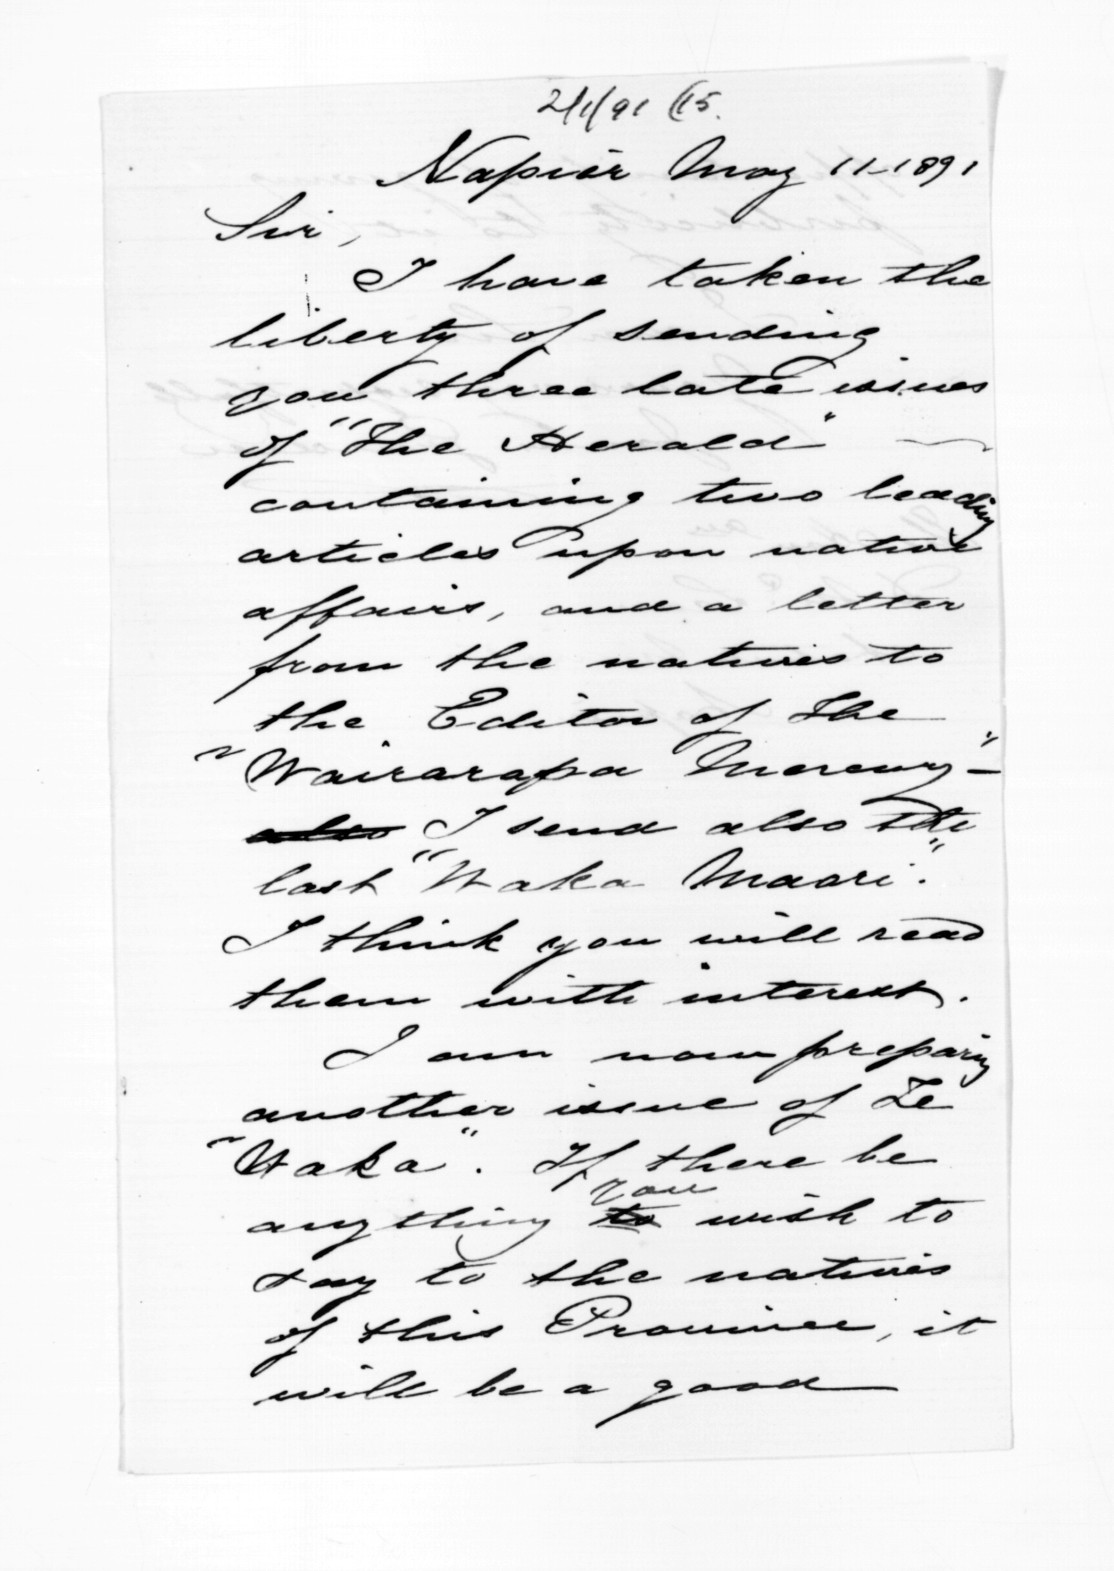 2/1/91 (15.
Napier May 11-1891
Sir,
I have taken the
liberty of sending
you three late issues
of "The Herald"
containing two leading
articles upon native
affairs, and a letter
from the natives to
the Editor of The
"Wairarapa Mercury" -
also I send also the
last "Waka Maori".
I think you will read
them with interest.
I am now preparing
another issue of Te
"Waka". If there be
you
anything to wish to
say to the natives
of this Province, it
will be a good